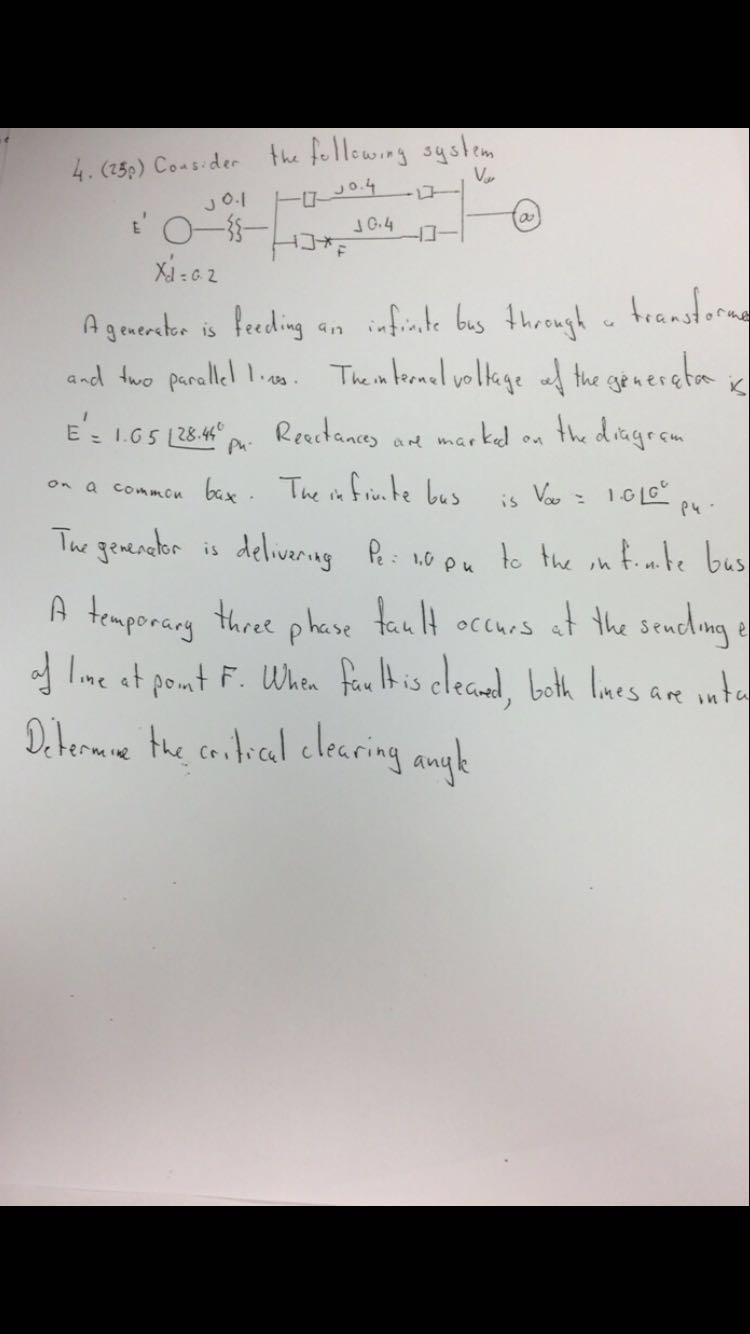 4. (25p) Consider the following system
j0.1 j0.4 V∞
E' j0.4 ∞
F
X'd = 0.2
A generator is feeding an infinite bus through a transforme
and two parallel lines. The internal voltage of the generator is
E' = 1.05 ∠28.44° pu. Reactances are marked on the diagram
on a common base. The infinite bus is V∞ = 1.0∠0° pu.
The generator is delivering Pe = 1.0 pu to the infinite bus
A temporary three phase fault occurs at the sending e
of line at point F. When fault is cleared, both lines are inta
Determine the critical clearing angle